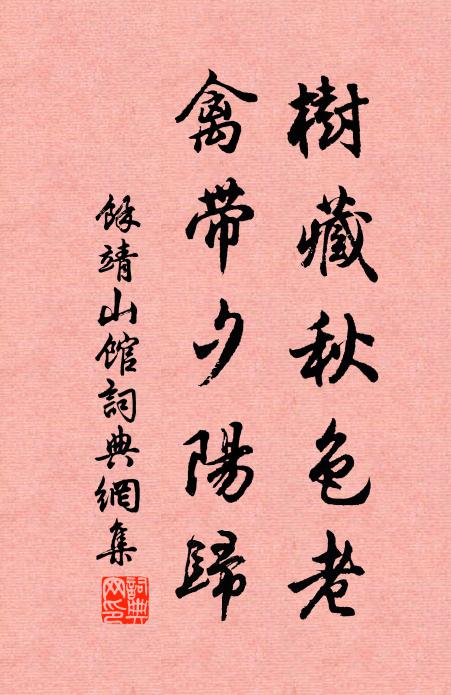 樹藏秋色老
禽帶夕陽歸
餘靖山館詞典網集
詞典網印